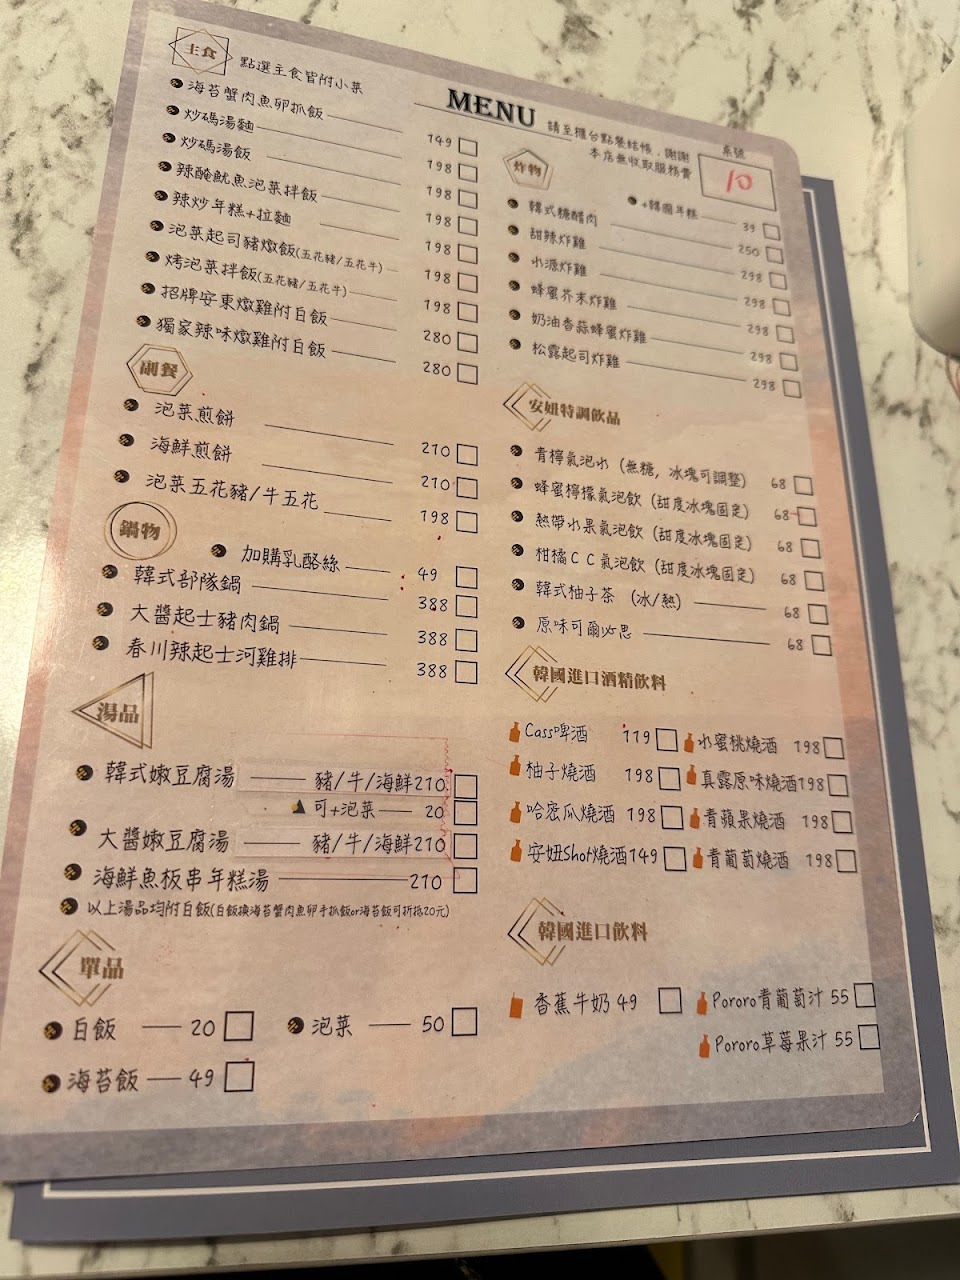 主食
點選主食皆附小菜
海苔蟹肉魚卵抓飯 149
炒碼湯麵 198
炒碼湯飯 198
辣醃魷魚泡菜拌飯 198
辣炒年糕+拉麵 198
泡菜起司豬燉飯(五花豬/五花牛) 198
烤泡菜拌飯(五花豬/五花牛) 198
招牌安東燉雞附白飯 280
獨家辣味燉雞附白飯 280
副餐
泡菜煎餅 210
海鮮煎餅 210
泡菜五花豬/牛五花 198
鍋物
加購乳酪絲 49
韓式部隊鍋 388
大醬起士豬肉鍋 388
春川辣起士河雞排 388
湯品
韓式嫩豆腐湯 豬/牛/海鮮210
可+泡菜 20
大醬嫩豆腐湯 豬/牛/海鮮210
海鮮魚板串年糕湯 210
以上湯品均附白飯(白飯換海苔蟹肉魚卵手抓飯or海苔飯可折抵20元)
單品
白飯 20
泡菜 50
海苔飯 49
MENU
請至櫃台點餐結帳，謝謝
本店無收取服務費
桌號
10
炸物
+韓國年糕 39
韓式糖醋肉 250
甜辣炸雞 298
水源炸雞 298
蜂蜜芥末炸雞 298
奶油香蒜蜂蜜炸雞 298
松露起司炸雞 298
安妞特調飲品
青檸氣泡水（無糖，冰塊可調整） 68
蜂蜜檸檬氣泡飲（甜度冰塊固定） 68
熱帶水果氣泡飲（甜度冰塊固定） 68
柑橘CC氣泡飲（甜度冰塊固定） 68
韓式柚子茶 （冰/熱） 68
原味可爾必思 68
韓國進口酒精飲料
Cass啤酒 119
水蜜桃燒酒 198
柚子燒酒 198
真露原味燒酒198
哈密瓜燒酒 198
青蘋果燒酒 198
安妞Shot燒酒149
青葡萄燒酒 198
韓國進口飲料
香蕉牛奶 49
Pororo青葡萄汁 55
Pororo草莓果汁 55